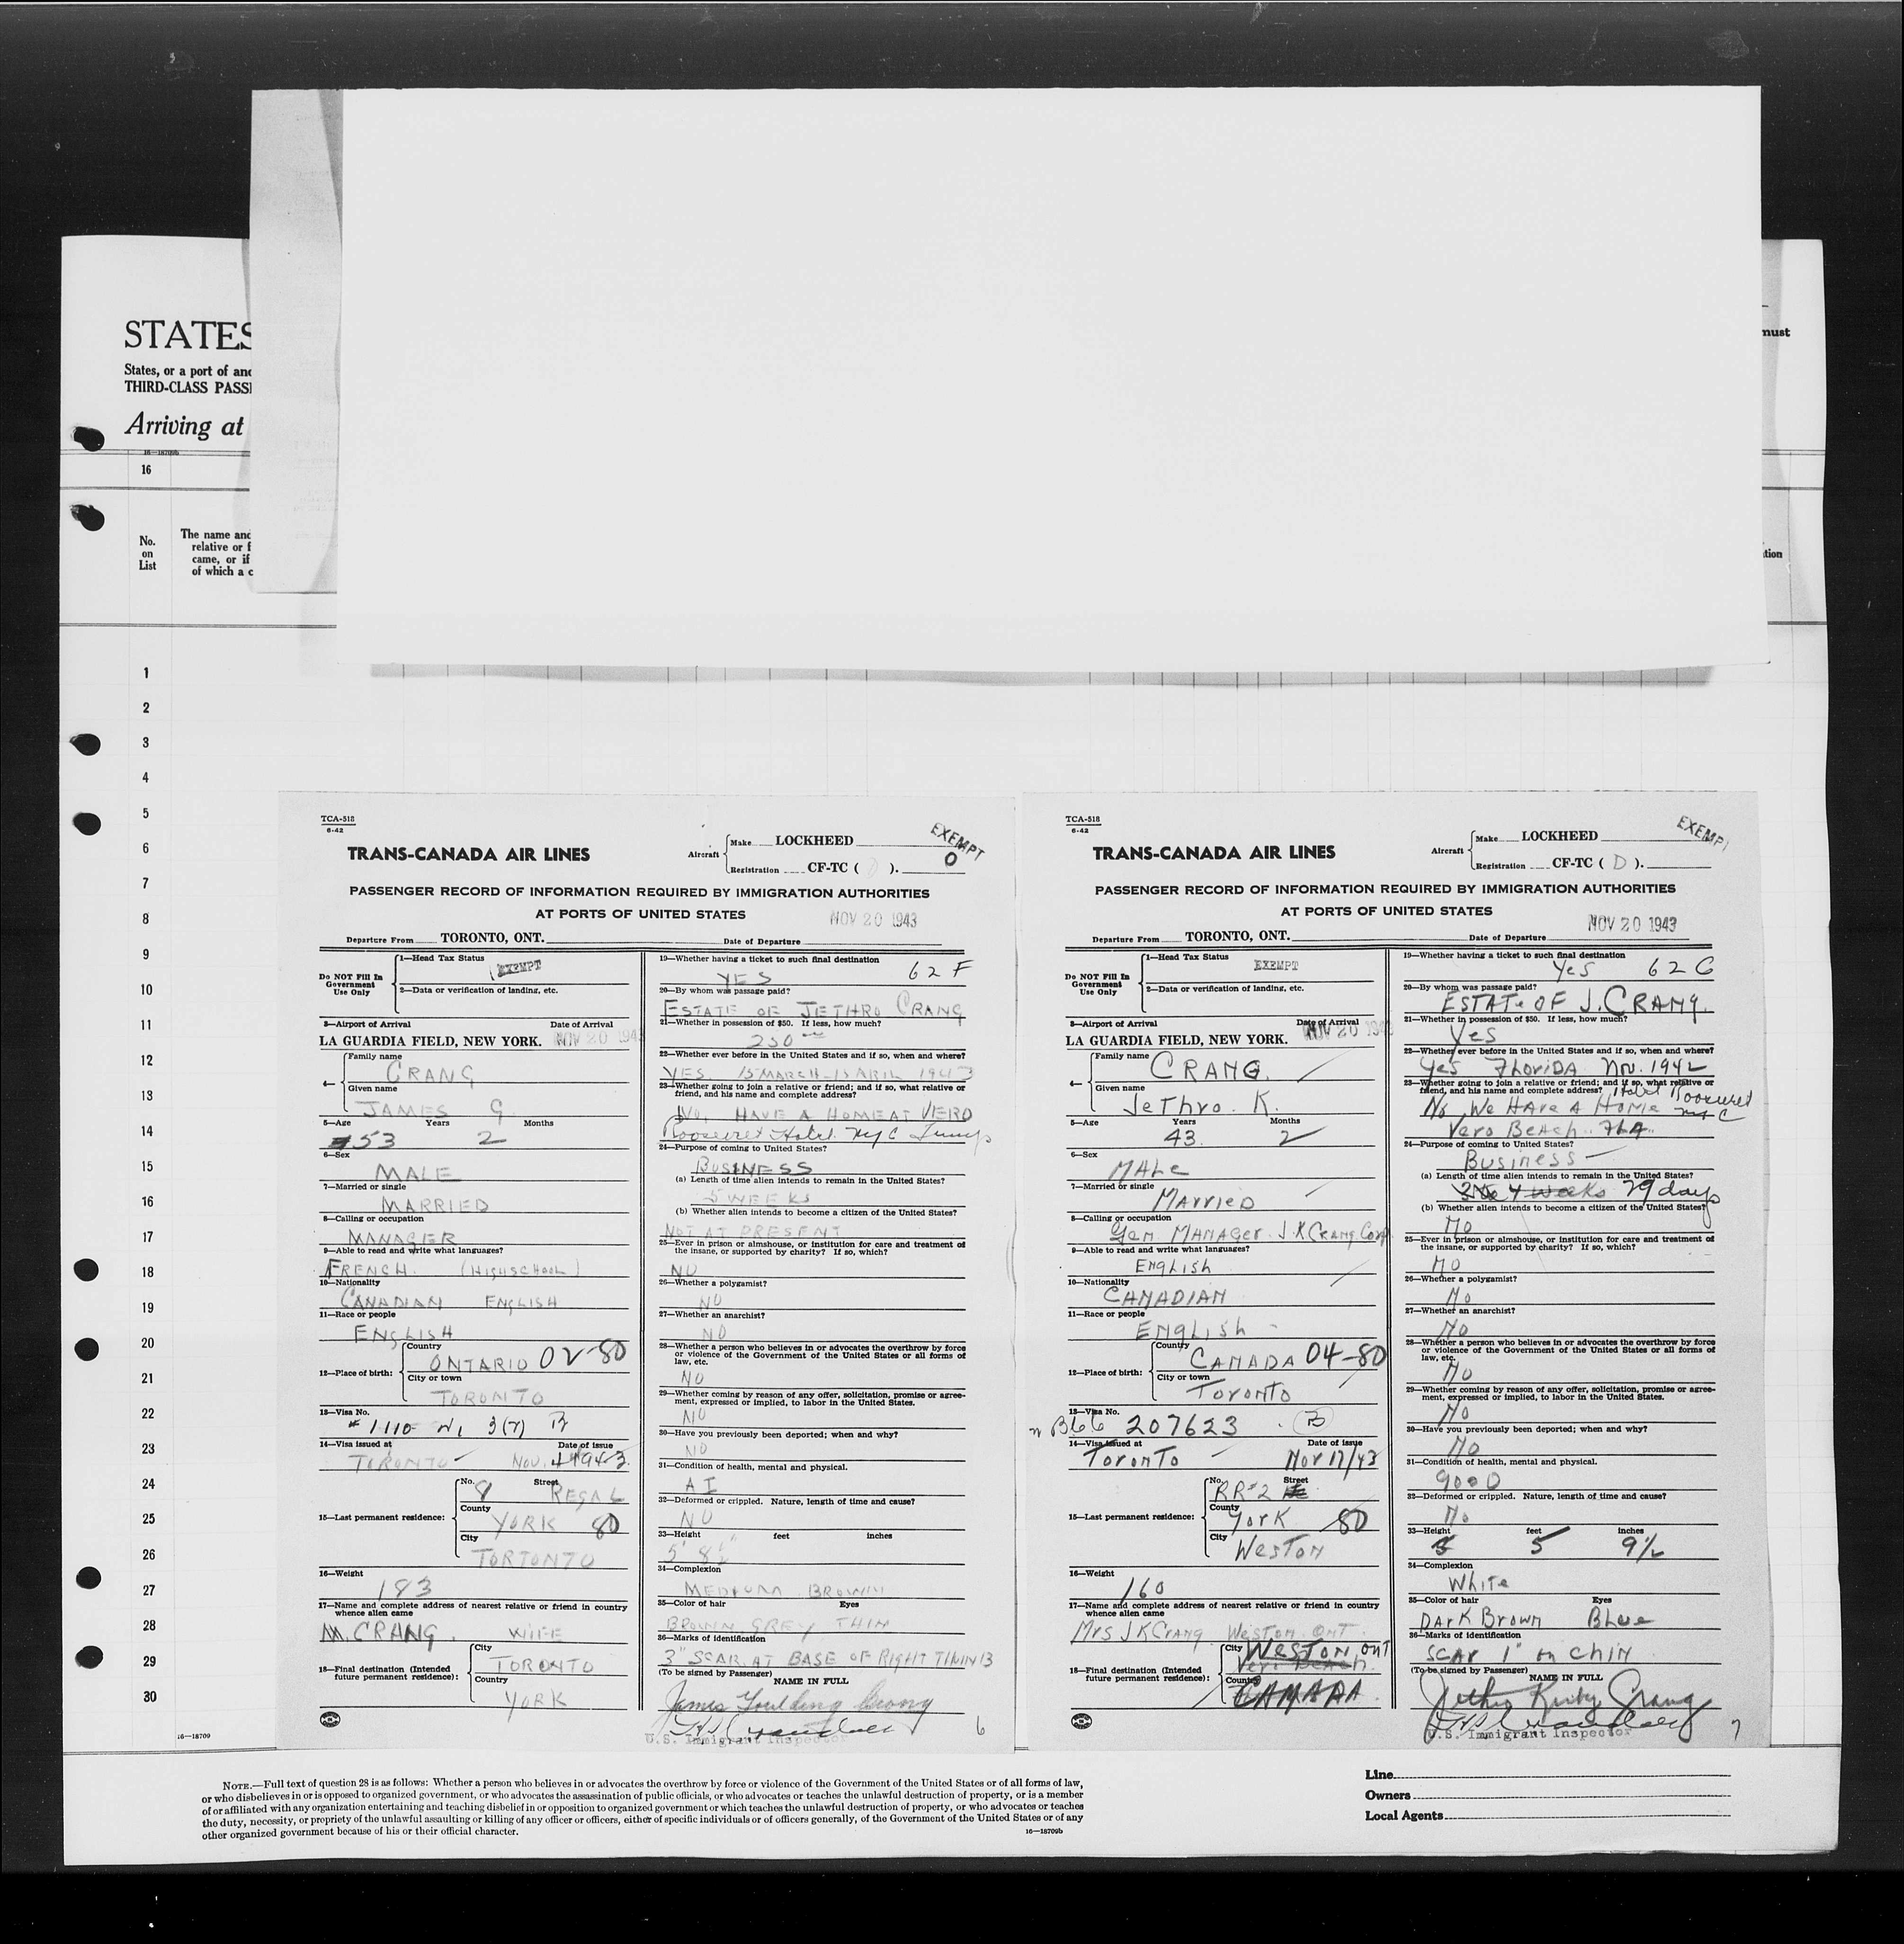 STATES
States, or a port of
THIRD-CLASS
Arriving at
16—18709b
16
No.
on
List
The name and
relative or
came, or if
of which a
must
1
2
3
4
5
6
7
8
9
10
11
12
13
14
15
16
17
18
19
20
21
22
23
24
25
26
27
28
29
30
16—18709
TCA-518
6-42
TRANS-CANADA AIR LINES
Aircraft
Make LOCKHEED
Registration CF-TC ( ).
EXEMPT
0
PASSENGER RECORD OF INFORMATION REQUIRED BY IMMIGRATION AUTHORITIES
AT PORTS OF UNITED STATES
NOV 20 1943
Departure From TORONTO, ONT. Date of Departure
Do NOT Fill In
Government
Use Only
1—Head Tax Status
EXEMPT
2—Data or verification of landing, etc.
3—Airport of Arrival Date of Arrival
LA GUARDIA FIELD, NEW YORK. NOV 20 1943
4—
Family name
CRANG
Given name
JAMES G
5—Age Years Months
53 2
6—Sex
MALE
7—Married or single
MARRIED
8—Calling or occupation
MANAGER
9—Able to read and write what languages?
FRENCH (HIGHSCHOOL)
10—Nationality
CANADIAN ENGLISH
11—Race or people
ENGLISH
12—Place of birth:
Country
ONTARIO 02-80
City or town
TORONTO
13—Visa No.
# 1110 3(7)
14—Visa issued at Date of issue
TORONTO NOV.
15—Last permanent residence:
No. Street
8 REGAL
County
YORK 80
City
TORTONTO
16—Weight
183
17—Name and complete address of nearest relative or friend in country
whence alien came
M. CRANG. WIFE
18—Final destination (Intended
future permanent residence):
City
TORONTO
Country
YORK
19—Whether having a ticket to such final destination
YES 62 F
20—By whom was passage paid?
ESTATE OF JETHRO CRANG
21—Whether in possession of $50. If less, how much?
250
22—Whether ever before in the United States and if so, when and where?
YES 15 MARCH-15 ARIL 1943
23—Whether going to join a relative or friend; and if so, what relative or
friend, and his name and complete address?
NO, HAVE A HOME AT VERO
Roosevelt Hotel NYC
24—Purpose of coming to United States?
BUSINESS
(a) Length of time alien intends to remain in the United States?
5 WEEKS
(b) Whether alien intends to become a citizen of the United States?
NOT AT PRESENT
25—Ever in prison or almshouse, or institution for care and treatment of
the insane, or supported by charity? If so, which?
NO
26—Whether a polygamist?
NO
27—Whether an anarchist?
NO
28—Whether a person who believes in or advocates the overthrow by force
or violence of the Government of the United States or all forms of
law, etc.
NO
29—Whether coming by reason of any offer, solicitation, promise or agree-
ment, expressed or implied, to labor in the United States.
NO
30—Have you previously been deported; when and why?
NO
31—Condition of health, mental and physical.
A I
32—Deformed or crippled. Nature, length of time and cause?
NO
33—Height feet inches
5' 8½"
34—Complexion
MEDIUM BROWN
35—Color of hair Eyes
BROWN GREY THIN
36—Marks of identification
3" SCAR AT BASE OF RIGHT
(To be signed by Passenger)
NAME IN FULL
James Goulding Crang
U.S. Immigrant Inspector
6
TCA-518
6-42
TRANS-CANADA AIR LINES
Aircraft
Make LOCKHEED
Registration CF-TC ( D ).
EXEMPT
PASSENGER RECORD OF INFORMATION REQUIRED BY IMMIGRATION AUTHORITIES
AT PORTS OF UNITED STATES
NOV 20 1943
Departure From TORONTO, ONT. Date of Departure
Do NOT Fill In
Government
Use Only
1—Head Tax Status
EXEMPT
2—Data or verification of landing, etc.
3—Airport of Arrival Date of Arrival
LA GUARDIA FIELD, NEW YORK. NOV 20 194
4—
Family name
CRANG.
Given name
JeThro. K.
5—Age Years Months
43. 2
6—Sex
MALe
7—Married or single
MArrieD
8—Calling or occupation
Gen. MANAGer. J.K CrANg Corp
9—Able to read and write what languages?
ENgLish
10—Nationality
CANADIAN
11—Race or people
ENgLish
12—Place of birth:
Country
CANADA 04-80
City or town
Toronto
13—Visa No.
B66 207623 B
14—Visa issued at Date of issue
ToronTo Nov 17/43
15—Last permanent residence:
No. Street
RR#2
County
York 80
City
WesTon
16—Weight
160
17—Name and complete address of nearest relative or friend in country
whence alien came
Mrs J K Crang Weston. ONT.
18—Final destination (Intended
future permanent residence):
City
WesTon ont
Vero Beach.
Country
CANADA.
19—Whether having a ticket to such final destination
Yes 62 G
20—By whom was passage paid?
ESTATe OF J. CRANg.
21—Whether in possession of $50. If less, how much?
Yes
22—Whether ever before in the United States and if so, when and where?
Yes FLoriDA Nov. 1942
23—Whether going to join a relative or friend; and if so, what relative or
friend, and his name and complete address? Hotel Roosevelt
No, We HAve A Home NYC
Vero BeAch. FLA.
24—Purpose of coming to United States?
Business
(a) Length of time alien intends to remain in the United States?
4 weeks 29 days
(b) Whether alien intends to become a citizen of the United States?
No
25—Ever in prison or almshouse, or institution for care and treatment of
the insane, or supported by charity? If so, which?
No
26—Whether a polygamist?
No
27—Whether an anarchist?
No
28—Whether a person who believes in or advocates the overthrow by force
or violence of the Government of the United States or all forms of
law, etc.
No
29—Whether coming by reason of any offer, solicitation, promise or agree-
ment, expressed or implied, to labor in the United States.
No
30—Have you previously been deported; when and why?
No
31—Condition of health, mental and physical.
gooD
32—Deformed or crippled. Nature, length of time and cause?
No
33—Height feet inches
5 9½
34—Complexion
White
35—Color of hair Eyes
DArK Brown BLue
36—Marks of identification
scAr 1" on chin
(To be signed by Passenger)
NAME IN FULL
Jethro Kirby Crang
U.S. Immigrant Inspector
7
NOTE.—Full text of question 28 is as follows: Whether a person who believes in or advocates the overthrow by force or violence of the Government of the United States or of all forms of law,
or who disbelieves in or is opposed to organized government, or who advocates the assassination of public officials, or who advocates or teaches the unlawful destruction of property, or is a member
of or affiliated with any organization entertaining and teaching disbelief in or opposition to organized government or which teaches the unlawful destruction of property, or who advocates or teaches
the duty, necessity, or propriety of the unlawful assaulting or killing of any officer or officers, either of specific individuals or of officers generally, of the Government of the United States or of any
other organized government because of his or their official character.
16—18709b
Line
Owners
Local Agents